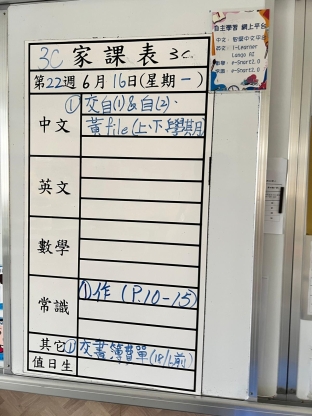 3C 家課表 3C
第22週6月16日(星期一)
中文
①交自(1)&自(2).
黃file(上、下學期)
英文
數學
常識
①作 (P.10-15)
其它
①交書簿費單(18/6前)
值日生
自主學習 網上平台
i-Learner
e-Smart2.0
e-Smart2.0